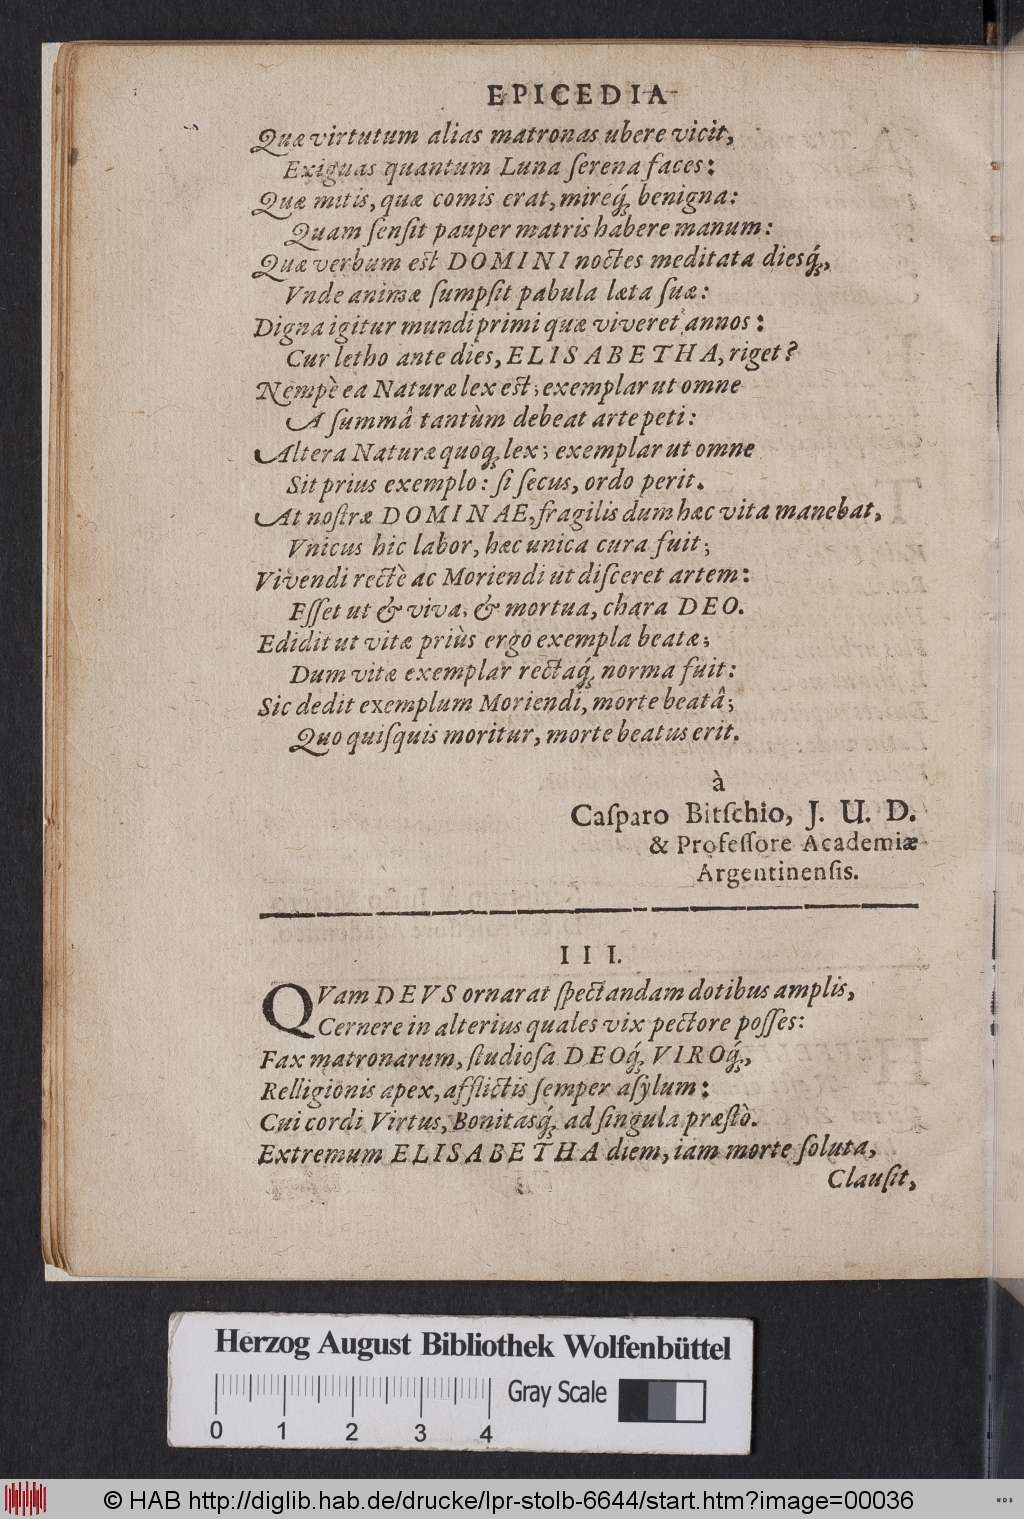 EPICEDIA
Quæ virtutum alias matronas ubere vicit,
Exiguas quantum Luna ſerena faces:
Quæ mitis, quæ comis erat, mireq́ꝫ benigna:
Quam ſenſit pauper matris habere manum:
Quæ verbum est DOMINI noctes meditata diesq́ꝫ,
Vnde animæ ſumpſit pabula læta ſuæ:
Digna igitur mundi primi quæ viveret annos:
Cur letho ante dies, ELISABETHA, riget?
Nempè ea Naturæ lex est; exemplar ut omne
A ſummâ tantùm debeat arte peti:
Altera Naturæ quoqꝫ lex; exemplar ut omne
Sit prius exemplo: ſi ſecus, ordo perit.
At noſtræ DOMINAE, fragilis dum hæc vita manebat,
Vnicus hic labor, hæc unica cura fuit;
Vivendi rectè ac Moriendi ut diſceret artem:
Eſſet ut & viva, & mortua, chara DEO.
Edidit ut vitæ priùs ergò exempla beatæ;
Dum vitæ exemplar rectaq́ꝫ norma fuit:
Sic dedit exemplum Moriendi, morte beatâ;
Quo quiſquis moritur, morte beatus erit.
à
Caſparo Bitſchio, J. U. D.
& Profeſſore Academiæ
Argentinenſis.
III.
QVam DEVS ornarat ſpectandam dotibus amplis,
Cernere in alterius quales vix pectore poſſes:
Fax matronarum, ſtudioſa DEOq́ꝫ VIROq́ꝫ,
Relligionis apex, afflictis ſemper aſylum:
Cui cordi Virtus, Bonitasq́ꝫ ad ſingula præſtò.
Extremum ELISABETHA diem, iam morte ſoluta,
Clauſit,
Herzog August Bibliothek Wolfenbüttel
Gray Scale
0 1 2 3 4
© HAB http://diglib.hab.de/drucke/lpr-stolb-6644/start.htm?image=00036